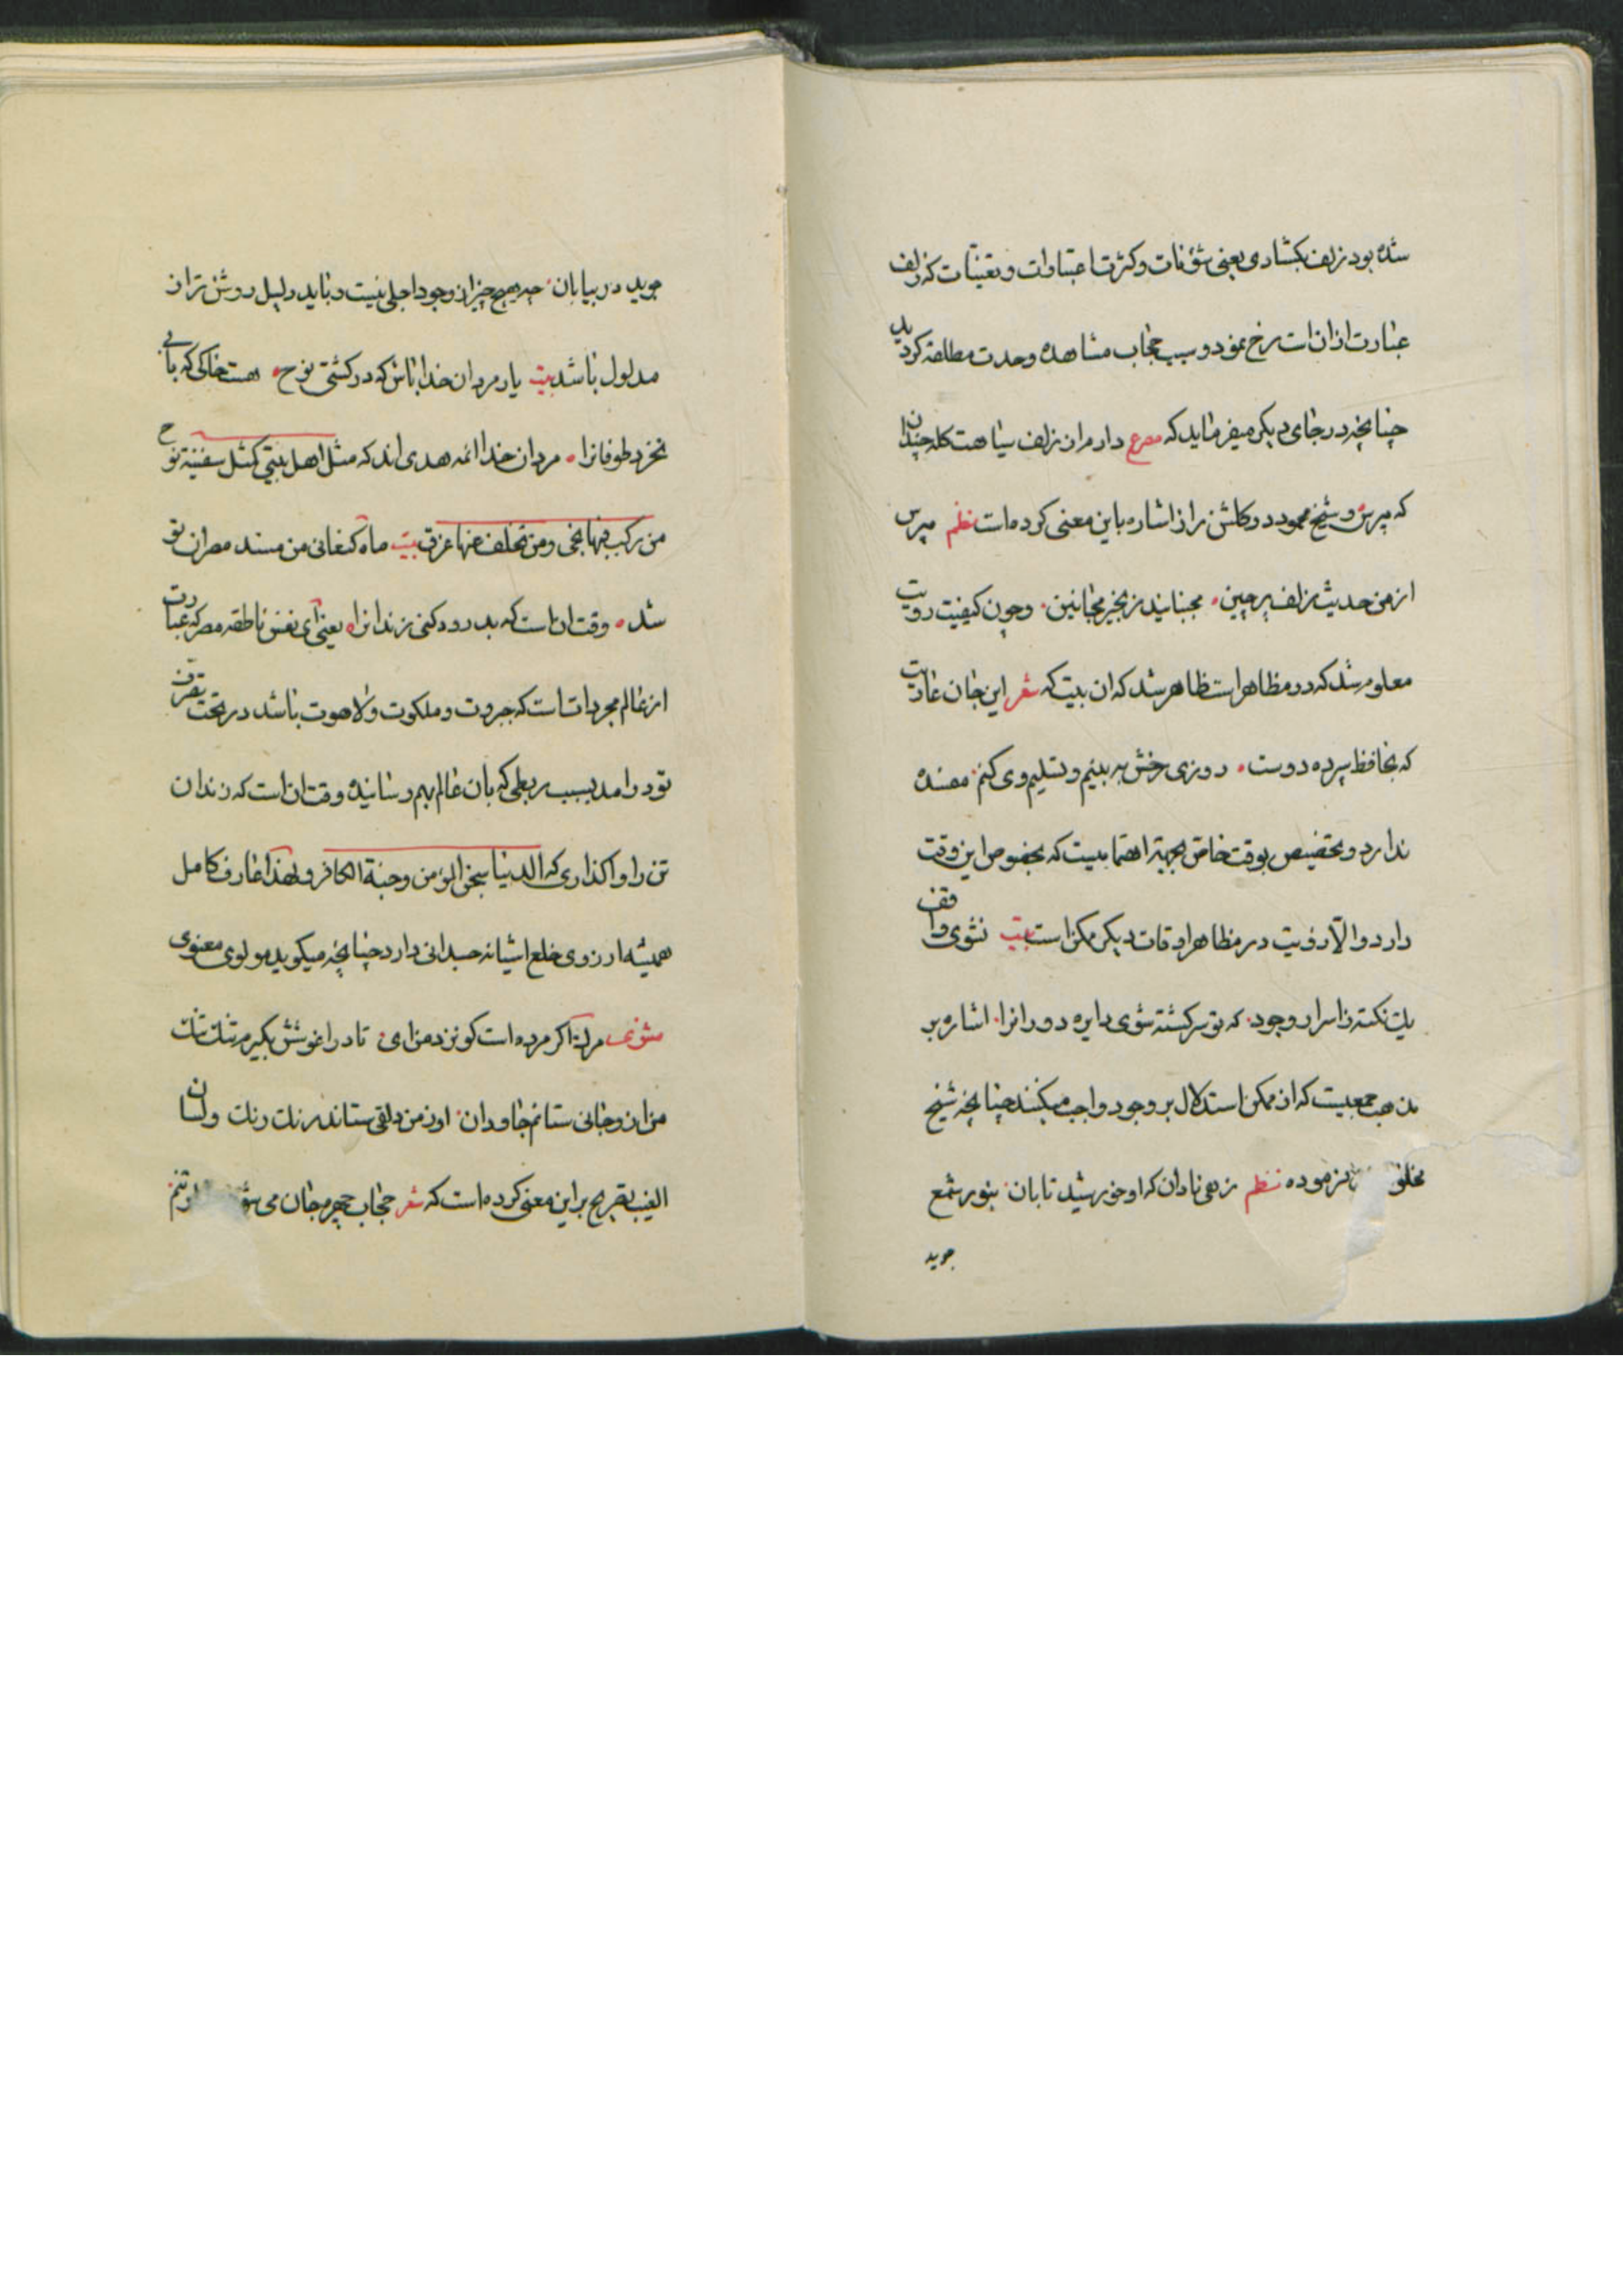 شده بود زلف بکشادی یعنی شؤنات و کثرت اعتبارات و تعینات که زلف
عبارت از ان است رخ نمود و سبب حجاب مشاهده وحدت مطلقه کردید
چنانچه در جای دیکر میفرماید که مصرع دارم از زلف سیاهت کله چندان
که مپرس و شیخ محمود در کلشن راز اشاره باین معنی کرده است نظم مپرس
از من حدیث زلف پرچین مجنبانید زنجیر مجانین وچون کیفیت رویت
معلوم شد که در مظاهر است ظاهر شد که ان بیت که شعر این جان عاریت
که بحافظ سپرده دوست روزی رخش به بینم و تسلیم وی کنم مفسده
ندارد و تخصیص بوقت خاص بجهة اهتمامیست که بخصوص این وقت
دارد والا رؤیت در مظاهر اوقات دیکر ممکن است بیت نشوی واقف
یك نکته ز اسرار وجود که تو سرکشته شوی دایره دورانرا اشاره بر
مذهب جمعیست که از ممکن استدلال بر وجود واجب میکنند چنانچه شیخ
فرموده نظم زهی نادان که او خورشید تابان بنور شمع
جوید
جوید در بیابان چه هیچ چیز از وجود اجلی نیست و باید دلیل روشن تر از
مدلول باشد بیت یار مردان خدا باش که در کشتی نوح هست خاکی که بابی
نخرد طوفانرا مردان خدا ائمه هدی اند که مثل اهل بیتی کمثل سفینة نوح
من رکب فیها نجی ومن تخلف عنها غرق بیت ماه کنعانی من مسند مصر ان تو
شد وقت ان است که بدرود کنی زندانرا یعنی ای نفس ناطقه مصر که عبارت
از عالم مجردات است که جبروت و ملکوت و لاهوت باشد در تحت تصرف
تو درامد بسبب ربطی که بان عالم بهم رسانیده وقت ان است که زندان
تن را واکذاری که الدنیا سجن المؤمن وجنة الکافر و لهذا عارف کامل
همیشه ارزوی خلع اشیانه جسدانی دارد چنانچه میکوید مولوی معنوی
مثنوی مرك اکر مرده است کو نزد من ای تا در اغوشش بکیرم تنك تنك
من ازو جانی ستانم جاودان او ز من دلقی ستاند رنك رنك ولسان
الغیب تصریح بر این معنی کرده است که شعر حجاب چهره جان می تنم